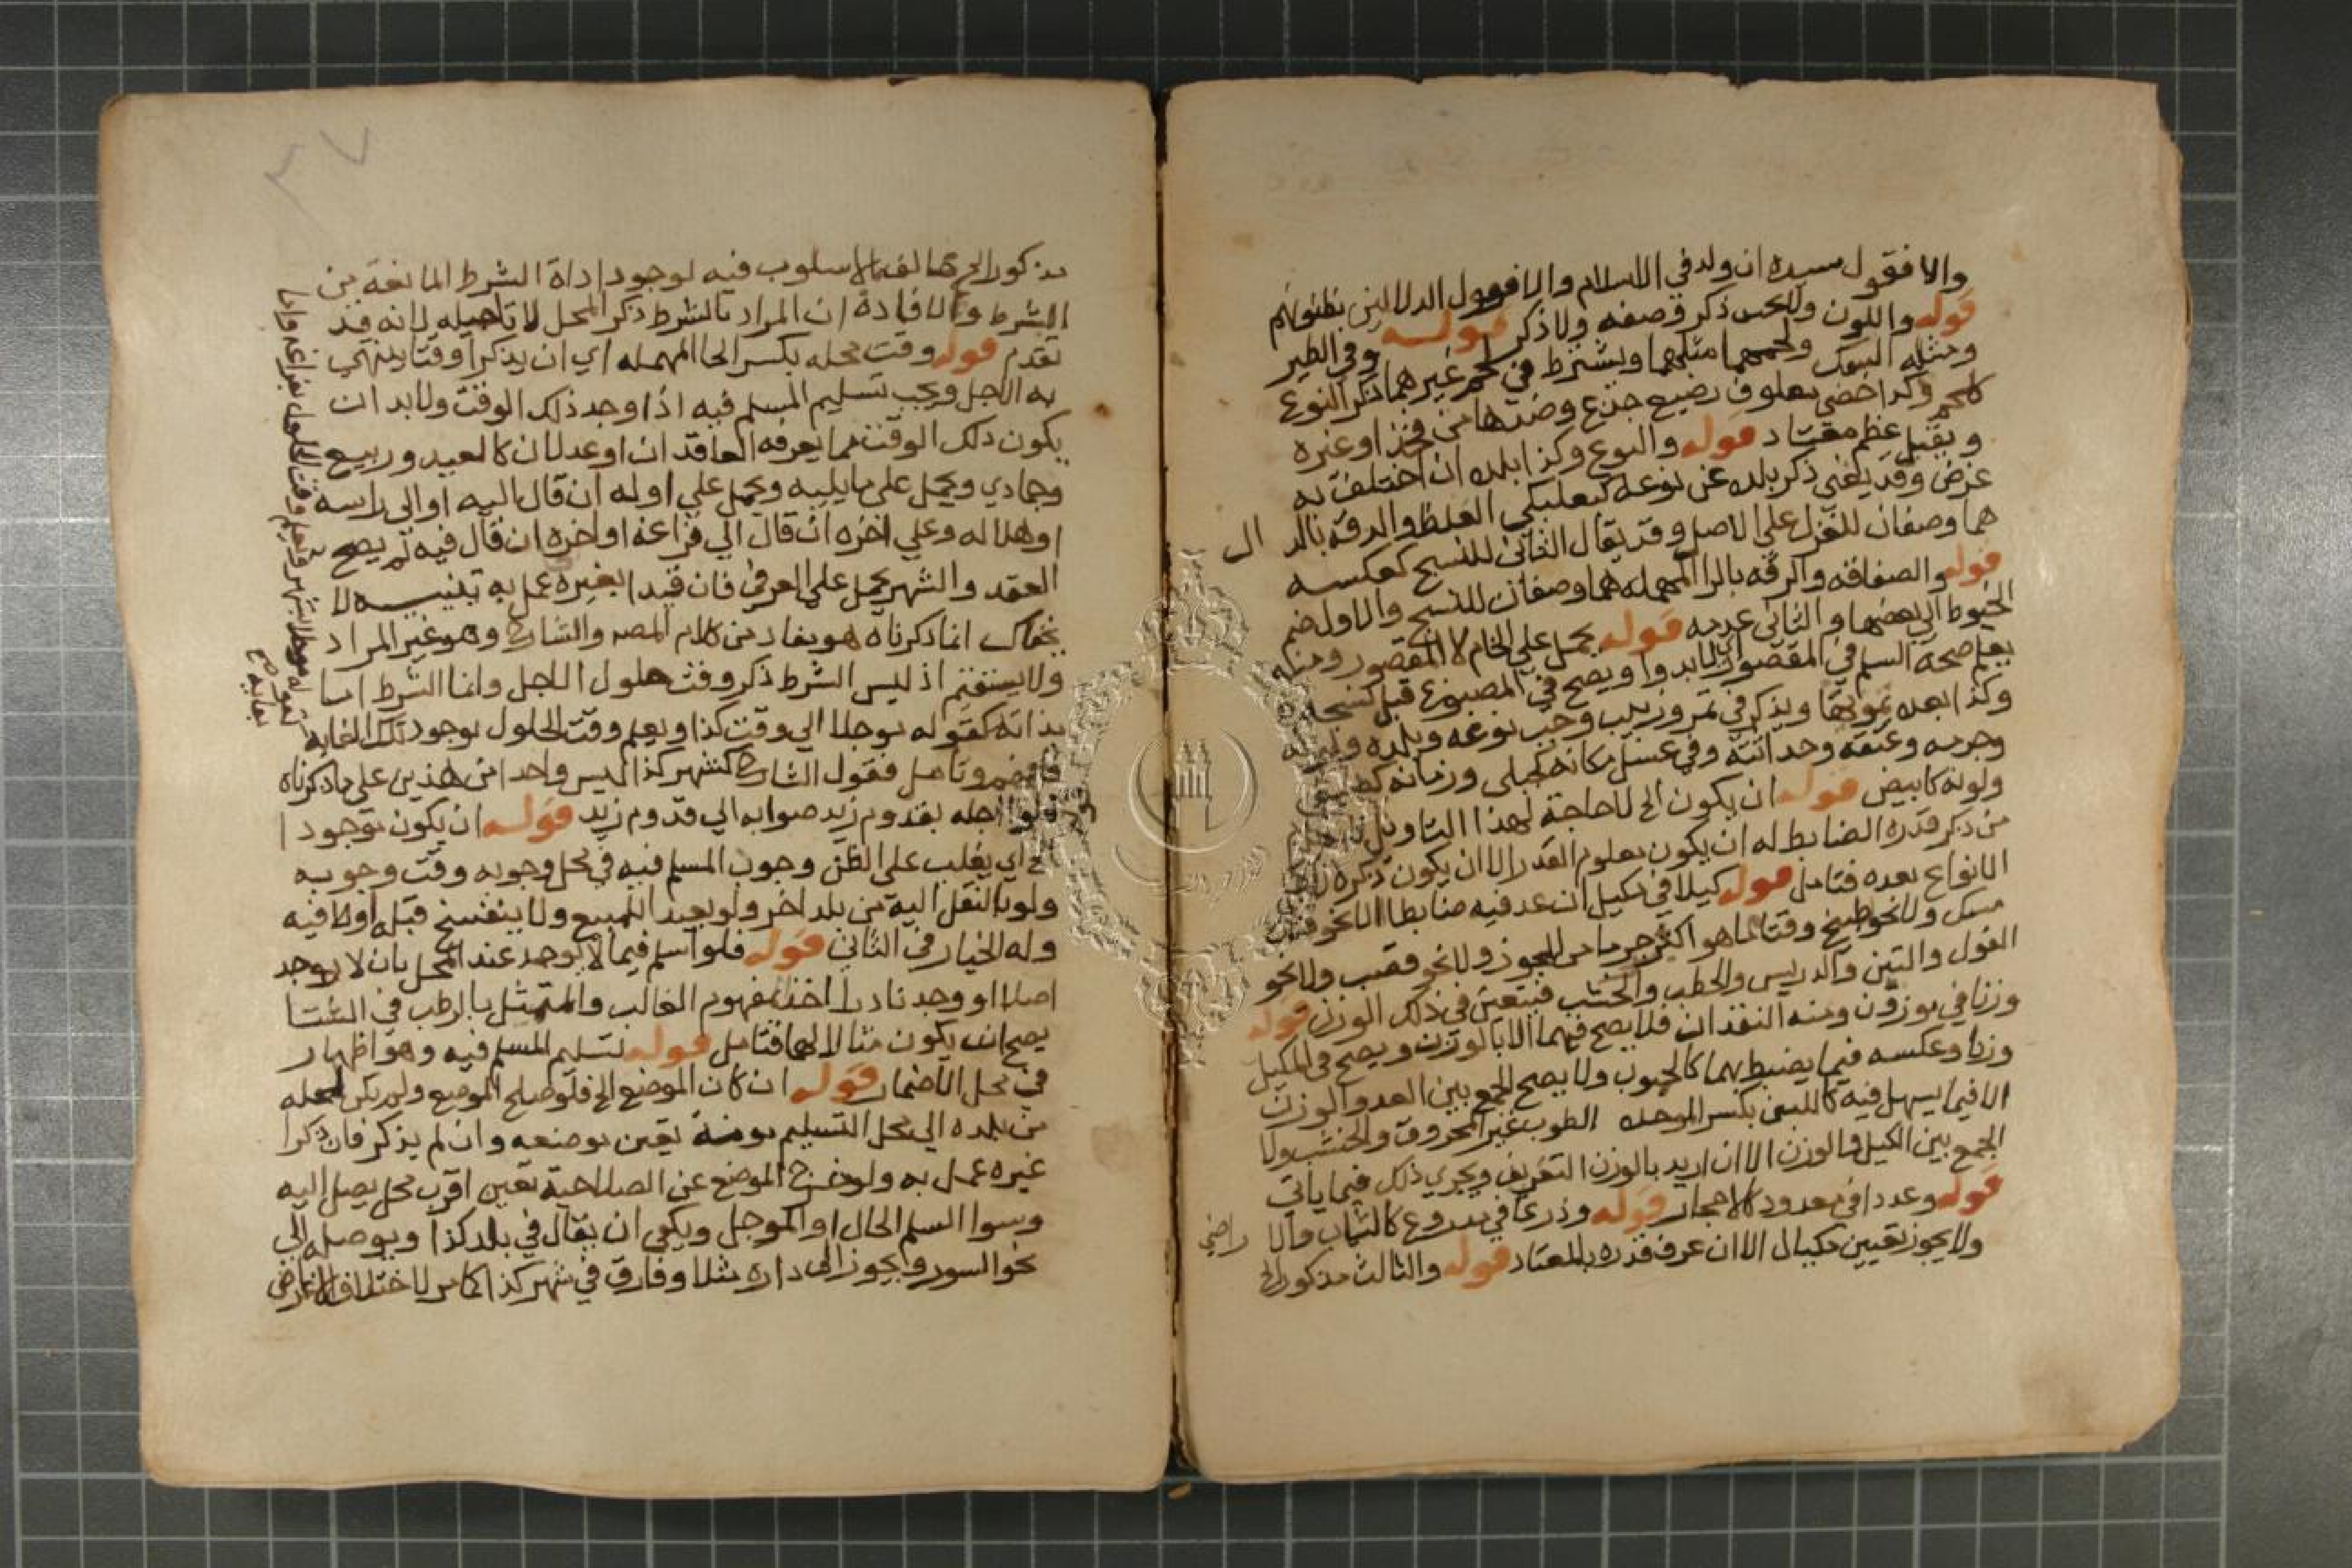 والا فقول سيده ان ولد في الاسلام والا فقول الدلالين بظنونهم
قوله واللون وللحسن ذكر وصفه ولا ذكر قوله وفي الطير
ومثله السمك ولحمهما مثلهما ويشترط في لحم غيرهما ذكر النوع
كلحم وكذا خصي معلوف رضيع جذع وضدها من فخذ او غيره
ويقبل عظم معتاد قوله والنوع وكذا بلده ان اختلف به
غرض وقد يغني ذكر بلده عن نوعه كبعلبكي الغلظ والدقة بالد ال
هما وصفان للغزل على الاصل وقد يقال الثاني للنسج كعكسه
قوله والصفاقه والرقه بالرا المهمله هما وصفان للنسج والاول ضم
الخيوط الي بعضها والثاني عدمه قوله يحمل علي الخام لا المقصور ومنه
يعلم صحة السلم في المقصور لا لبدوا ويصح في المصبوغ قبل نسجه
وكذا بعده ويذكر في تمر وزبيب وحب نوعه وبلده ولونه
وجرمه وعتقه وحداثته وفي عسل مكانه كجبلي وزمانه
ولونه كابيض قوله ان يكون الخ لا حاجة لهذا التاويل
من ذكر قدره الضابط له ان يكون معلوم القدر الا ان يكون ذكره
الانواع بعده فتامل قوله كيلا في مكيل ان عد فيه ضابطا لا نحو فتات
مسك ولا نحو بطيخ وقثا مما هو اكثر جرما من الجوز ولا نحو قصب ولا نحو
الفول والتبن والدريس والحطب والخشب فيتعين في ذلك الوزن قوله
وزنا في موزون ومنه النقدان فلا يصح فيهما الا بالوزن ويصح في المكيل
وزنا وعكسه فيما يضبط بهما كالحبوب ولا يصح الجمع بين العد والوزن
الا فيما يسهل فيه كاللبن بكسر الموحده الطوب غير المحروق والخشب ولا
الجمع بين الكيل والوزن الا ان اريد بالوزن التعريف ويجري ذلك فيما ياتي
قوله وعددا في معدود كالاحجار قوله وذرعا في مذروع كالثياب والا راضي
ولا يجوز تعيين مكيال الا ان عرف قدره بالمعتاد قوله والثالث مذكور الخ
٣٧
مذكور الخ مخالف الاسلوب فيه لوجود اداة الشرط المانعة من
الشرط والافادة ان المراد بالشرط ذكر المحل لا تاجيله لانه قد
تقدم قوله وقت محله بكسر الحا المهمله اي ان يذكرا وقتا ينتهي
به الاجل ويجب تسليم المسلم فيه اذا وجد ذلك الوقت ولا بد ان
يكون ذلك الوقت مما يعرفه العاقدان او عدلان كالعيد وربيع
وجمادي ويحمل على ما يليه ويحمل علي اوله ان قال اليه او الى راسه
او هلاله وعلي اخره ان قال الي فراغه او اخره ان قال فيه لم يصح
العقد والشهر يحمل علي العرفي فان قيد بغيره عمل به تنبيه لا
يخفاك ان ما ذكرناه هو مفاد من كلام المصه والشارح وهو غير المراد
ولا يستقيم اذ ليس الشرط ذكر وقت حلول الاجل وانما الشرط اما
بذاته كقوله موجلا الي وقت كذا ويعلم وقت الحلول بوجود تلك الغايه
فافهم وتامل فقول الشارح كشهر كذا ليس واحدا من هذين على ما ذكرناه
فلو اجله بقدوم زيد صوابه الي قدوم زيد قوله ان يكون موجودا
الخ اي يغلب على الظن وجود المسلم فيه في محل وجوبه وقت وجوبه
ولو بالنقل اليه من بلد اخر ولو بعيدا للمبيع ولا ينفسخ قبله او لا فيه
وله الخيار في الثاني قوله فلو اسلم فيما لا يوجد عند المحل بان لا يوجد
اصلا او وجد نادرا اخذا بمفهوم الغالب والمتمثل بالرطب في الشتا
يصح ان يكون مثالا لهما فتامل قوله لتسليم المسلم فيه وهو اظهار
في محل الاضمار قوله ان كان الموضع الخ فلو صلح الموضع ولم يكن لحمله
من بلده الي محل التسليم مونة تعين موضعه وان لم يذكر فان ذكرا
غيره عمل به ولو خرج الموضع عن الصلاحية تعين اقرب محل يصل اليه
وسوا السلم الحال او الموجل ويكفي ان يقال في بلد كذا ويوصله الي
نحو السور ويجوز الى داره مثلا وفارق في شهر كذا كما مر لاختلاف الاغراض